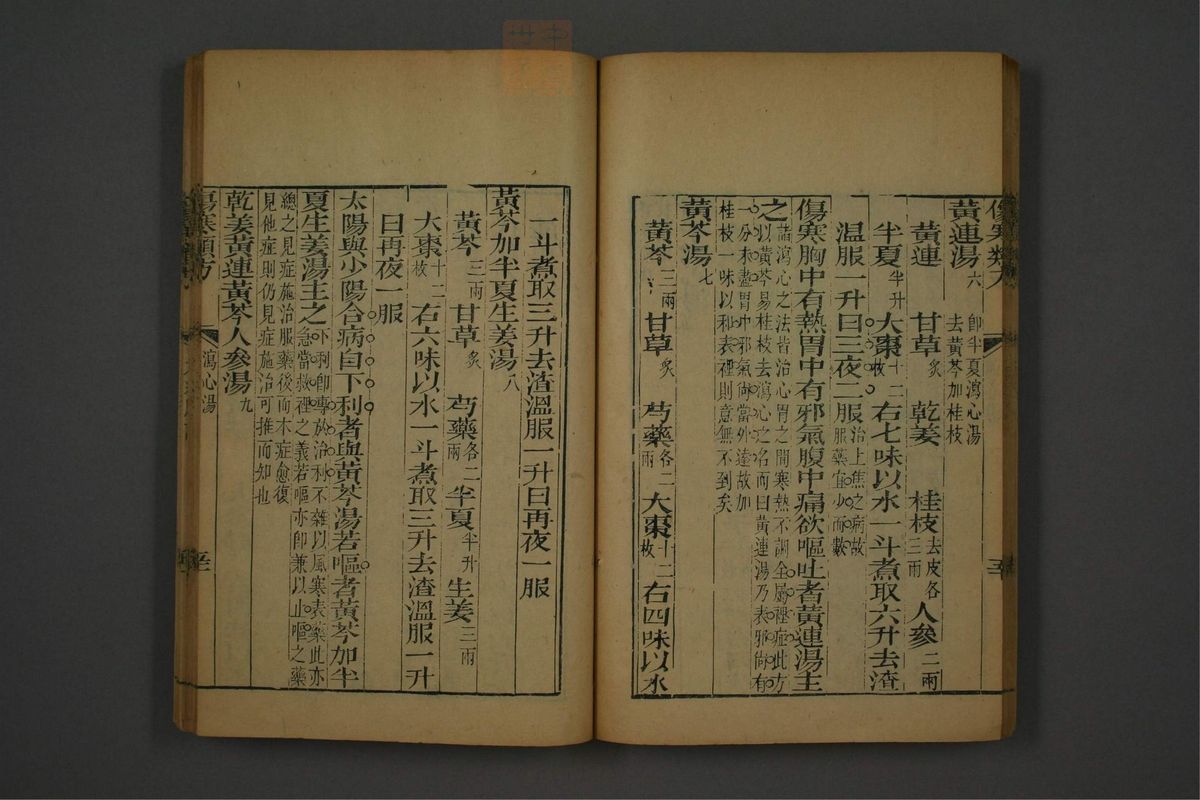 黃連湯 六 卽半夏瀉心湯去黃芩加桂枝
黃連 甘草炙 乾姜 桂枝去皮各三兩 人參二兩
半夏半升 大棗十二枚 右七味以水一斗煮取六升去渣
温服一升日三夜二服 治上焦之病故服藥宜少而數
傷寒胸中有熱胃中有邪氣腹中痛欲嘔吐者黃連湯主
之 諸瀉心之法皆治心胃之間寒熱不調全屬裡症此方以黃芩易桂枝去瀉心之名而曰黃連湯乃表邪尙有一分未盡胃中邪氣尙當外達故加桂枝一味以和表裡則意無不到矣
黃芩湯 七
黃芩三兩 甘草炙 芍藥各二兩 大棗十二枚 右四味以水
一斗煮取三升去渣溫服一升日再夜一服
黃芩加半夏生姜湯 八
黃芩三兩 甘草炙 芍藥各二兩 半夏半升 生姜三兩
大棗十二枚 右六味以水一斗煮取三升去渣溫服一升
日再夜一服
太陽與少陽合病自下利者與黃芩湯若嘔者黃芩加半
夏生姜湯主之 下利卽專於治利不雜以風寒表藥此亦急當救裡之義若嘔亦卽兼以止嘔之藥總之見症施治服藥後而本症愈復見他症則仍見症施治可推而知也
乾姜黃連黃芩人參湯 九
傷寒類方
瀉心湯